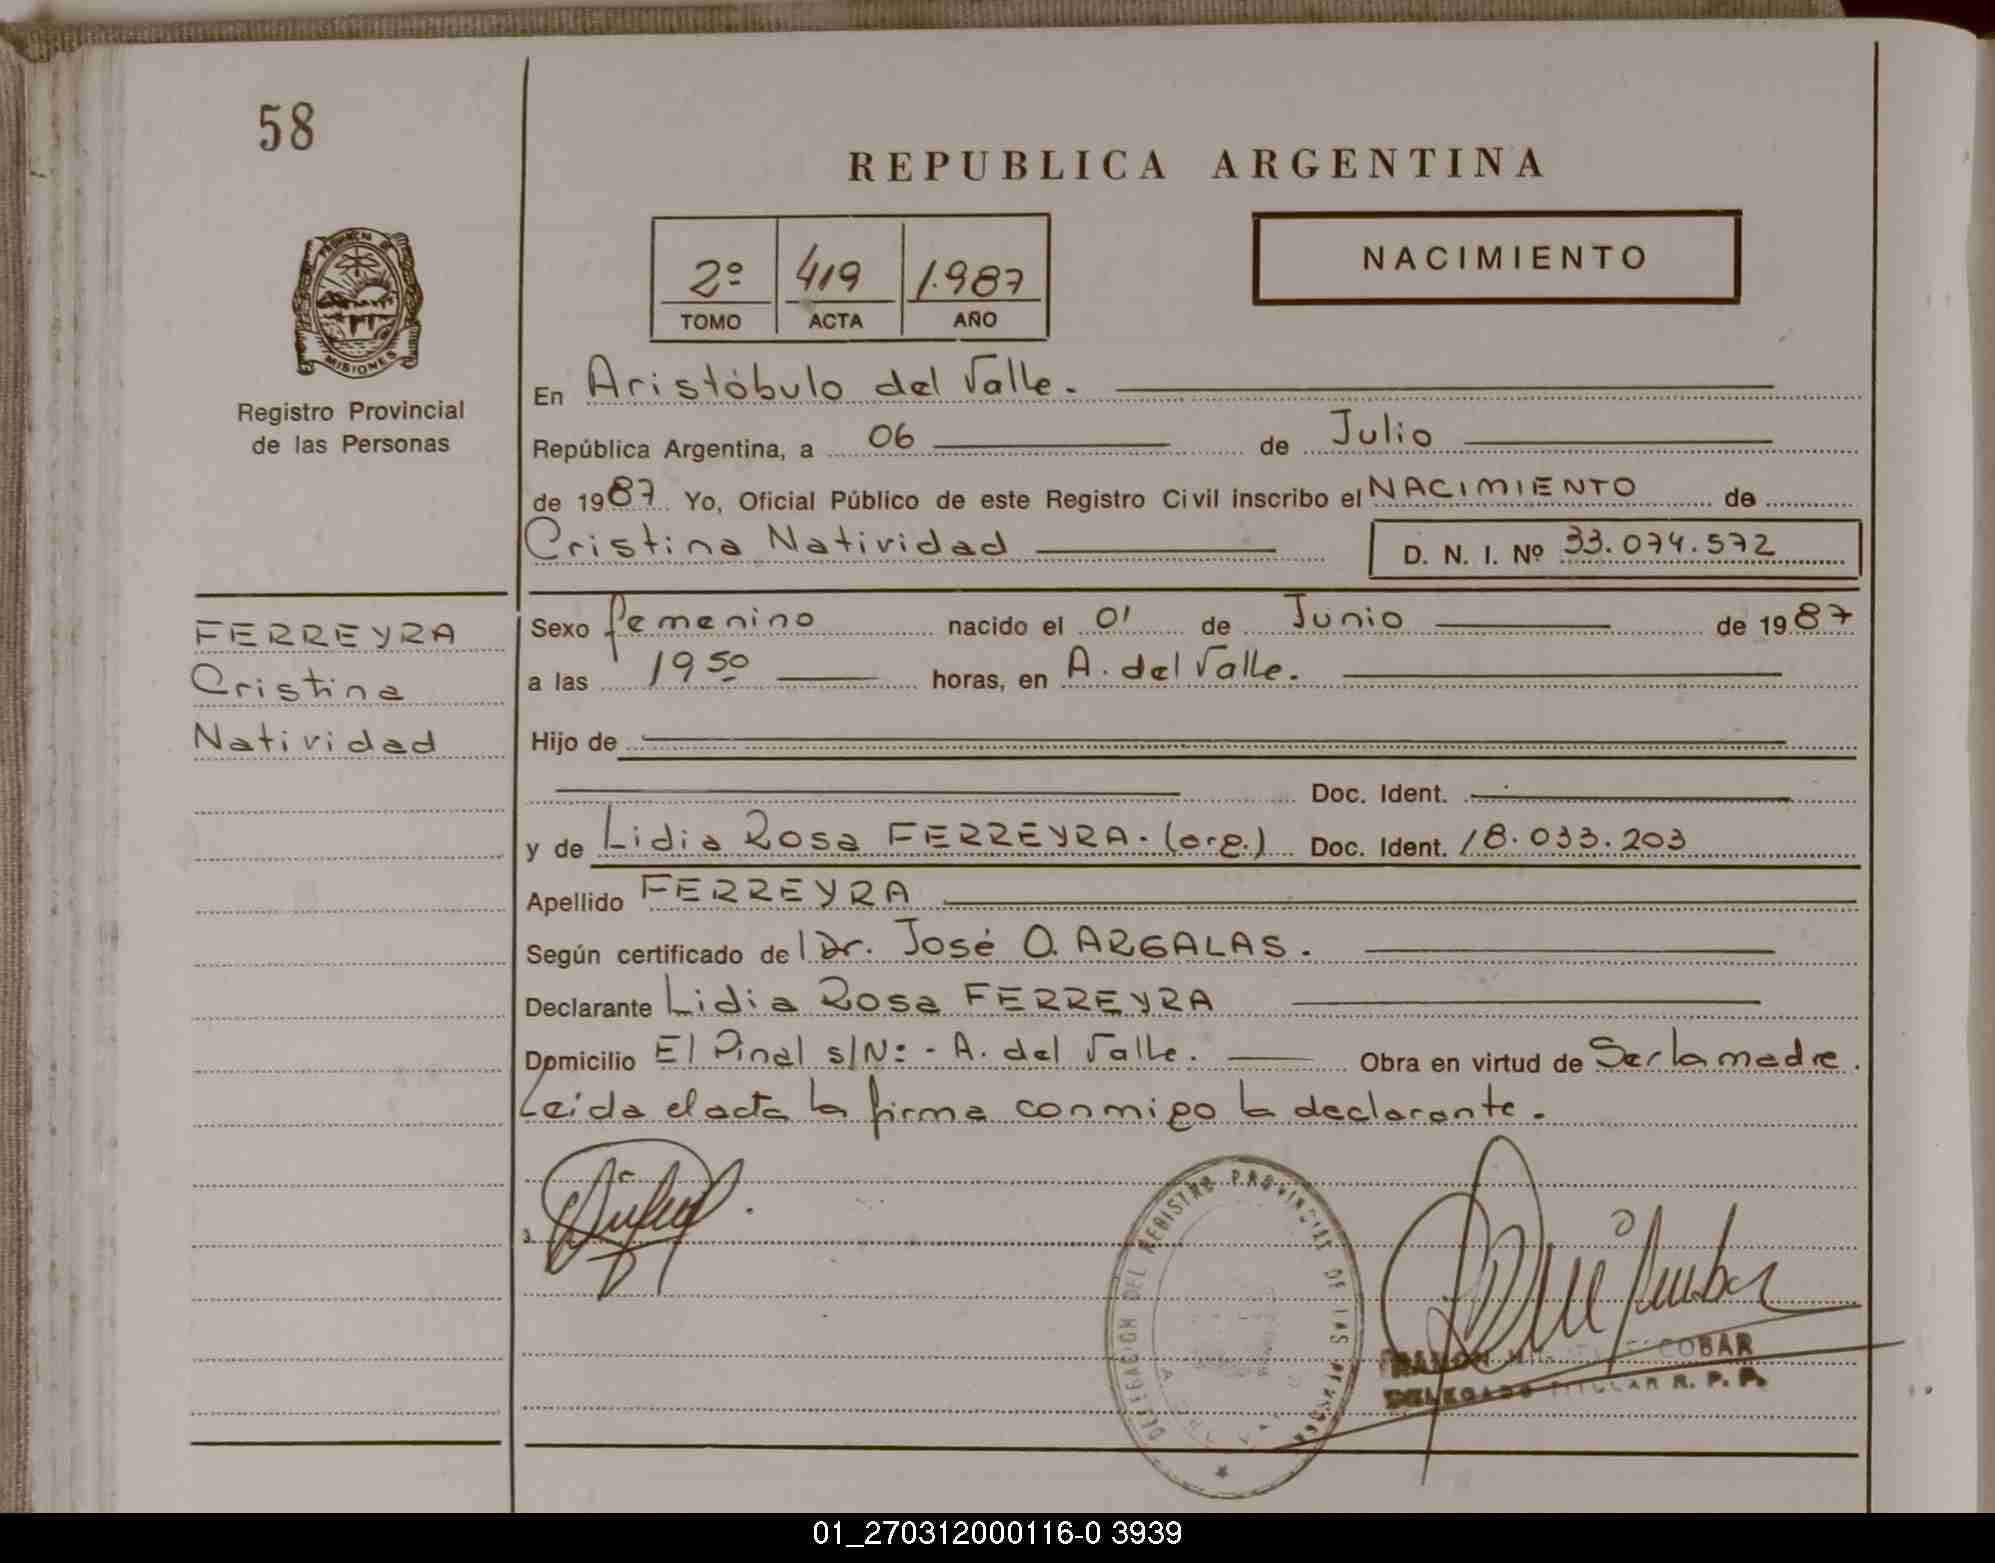 58
REPUBLICA ARGENTINA
NACIMIENTO
2º 419 1.987
TOMO ACTA AÑO
MISIONES
Registro Provincial
de las Personas
En Aristóbulo del Valle.
República Argentina, a 06 de Julio
de 1987 Yo, Oficial Público de este Registro Civil inscribo el NACIMIENTO de
Cristina Natividad D. N. I. Nº 33.074.572
FERREYRA
Cristina
Natividad
Sexo femenino nacido el 01 de Junio de 1987
a las 19 50 horas, en A. del Valle.
Hijo de
Doc. Ident.
y de Lidia Rosa FERREYRA.(arg.) Doc. Ident. 18.033.203
Apellido FERREYRA
Según certificado del Dr. José O. ARGALAS.
Declarante Lidia Rosa FERREYRA
Domicilio El Pinal s/Nº - A. del Valle. Obra en virtud de Ser la madre.
Leida el acta la firma conmigo la declarante.
DELEGACION DEL REGISTRO PROVINCIAL DE LAS PERSONAS
RAMON ESCOBAR
DELEGADO TITULAR R. P. P.
01_270312000116-0 3939